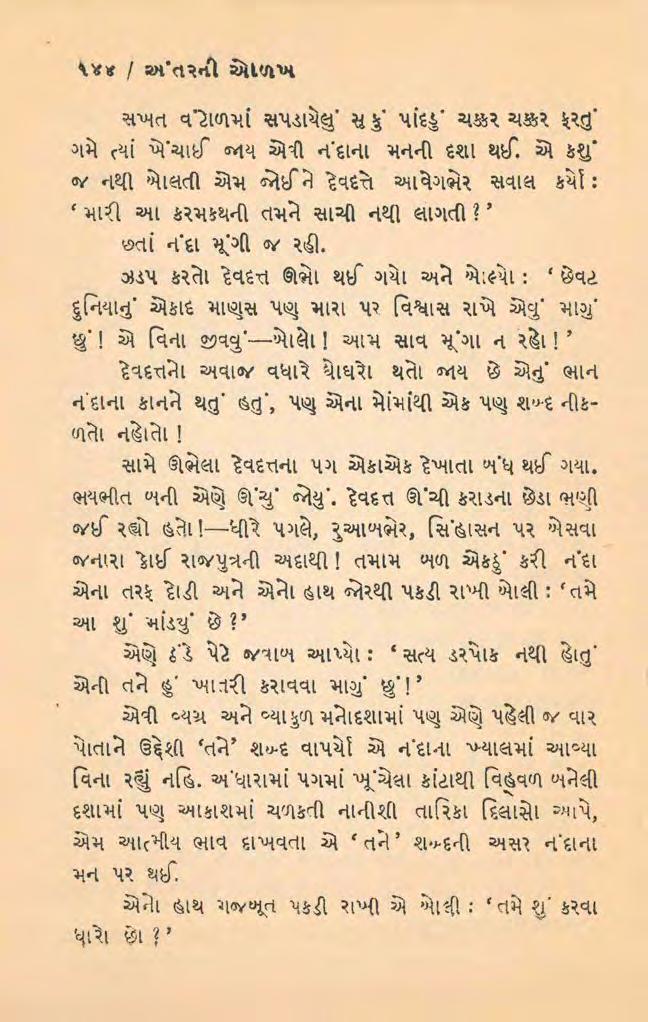 ૧૪૪ / અંતરની ઓળખ
સખત વંટોળમાં સપડાયેલું સુકું પાંદડું ચક્કર ચક્કર ફરતું
ગમે ત્યાં ખેંચાઈ જાય એવી નંદાના મનની દશા થઈ. એ કશું
જ નથી બોલતી એમ જોઈને દેવદત્તે આવેગભેર સવાલ કર્યો :
‘ મારી આ કરમકથની તમને સાચી નથી લાગતી ? ’
છતાં નંદા મૂંગી જ રહી.
ઝડપ કરતો દેવદત્ત ઊભો થઈ ગયો અને બોલ્યો : ‘ છેવટ
દુનિયાનું એકાદ માણસ પણ મારા પર વિશ્વાસ રાખે એવું માગું
છું ! એ વિના જીવવું—બોલો ! આમ સાવ મૂંગા ન રહો ! ’
દેવદત્તનો અવાજ વધારે ઘોઘરો થતો જાય છે એનું ભાન
નંદાના કાનને થતું હતું, પણ એના મોંમાંથી એક પણ શબ્દ નીક-
ળતો નહોતો !
સામે ઊભેલા દેવદત્તના પગ એકાએક દેખાતા બંધ થઈ ગયા.
ભયભીત બની એણે ઊંચું જોયું. દેવદત્ત ઊંચી કરાડના છેડા ભણી
જઈ રહ્યો હતો !—ધીરે પગલે, રુઆબભેર, સિંહાસન પર બેસવા
જનારા કોઈ રાજપુત્રની અદાથી ! તમામ બળ એકઠું કરી નંદા
એના તરફ દોડી અને એનો હાથ જોરથી પકડી રાખી બોલી : ‘તમે
આ શું માંડયું છે ?’
એણે ઠંડે પેટે જવાબ આપ્યો : ‘ સત્ય ડરપોક નથી હોતું
એની તને હું ખાતરી કરાવવા માગું છું !’
એવી વ્યગ્ર અને વ્યાકુળ મનોદશામાં પણ એણે પહેલી જ વાર
પોતાને ઉદ્દેશી ‘તને’ શબ્દ વાપર્યો એ નંદાના ખ્યાલમાં આવ્યા
વિના રહ્યું નહિ. અંધારામાં પગમાં ખૂંચેલા કાંટાથી વિહ્વળ બનેલી
દશામાં પણ આકાશમાં ચળકતી નાનીશી તારિકા દિલાસો આપે,
એમ આત્મીય ભાવ દાખવતા એ ‘ તને ’ શબ્દની અસર નંદાના
મન પર થઈ.
એનો હાથ મજબૂત પકડી રાખી એ બોલી : ‘તમે શું કરવા
ધારો છો ? ’